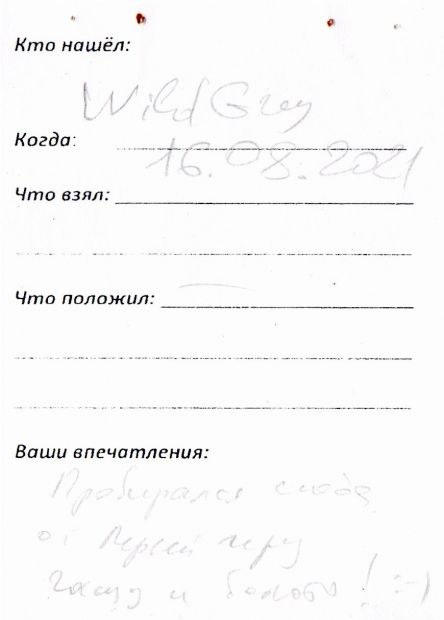 Кто нашёл:
Wild Grey
Когда:
16.08.2021
Что взял:
Что положил:
Ваши впечатления:
Пробирался сюда
от
и болото! :-)